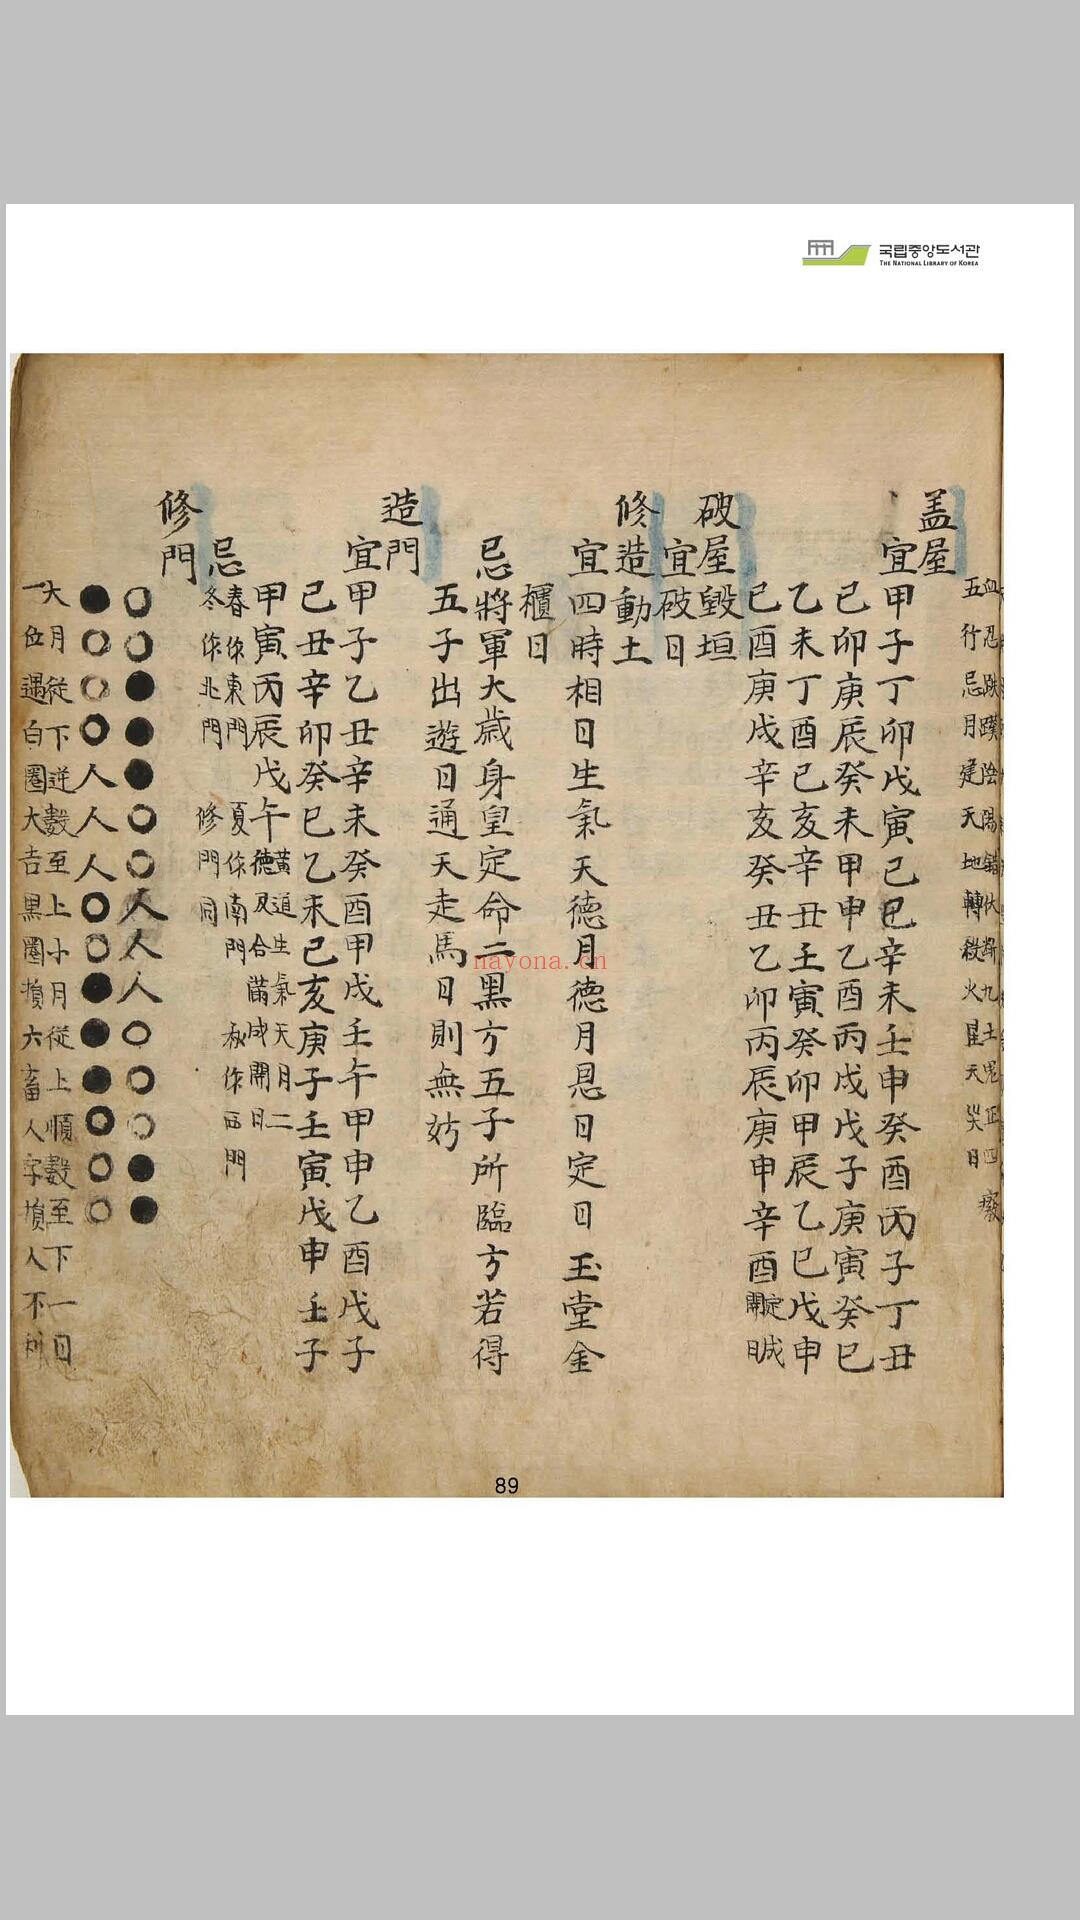 국립중앙도서관
THE NATIONAL LIBRARY OF KOREA
血忌 陰陽錯 九土鬼正四廢
五行忌月建天地轉殺火星天災日
盖屋
宜甲子丁卯戊寅己巳辛未壬申癸酉丙子丁丑
己卯庚辰癸未甲申乙酉丙戌戊子庚寅癸巳
乙未丁酉己亥辛丑壬寅癸卯甲辰乙巳戊申
己酉庚戌辛亥癸丑乙卯丙辰庚申辛酉定成
開日
破屋毀垣
宜破日
修造動土
宜四時相日生氣天德月德月恩日定日玉堂金
櫃日
忌將軍大歲身皇定命二黑方五子所臨方若得
五子出遊日通天走馬日則無妨
造門
宜甲子乙丑辛未癸酉甲戌壬午甲申乙酉戊子
己丑辛卯癸巳乙未己亥庚子壬寅戊申壬子
甲寅丙辰戊午黃道生氣天月二
德及合滿成開日
忌春作東門 夏作南門 秋作西門
冬作北門 修門同
修門
人人人
人人人
大月從下逆數至上小月從上順數至下一日
一位遇白圈大吉黑圈損六畜人字損人不利
nayona.cn
89